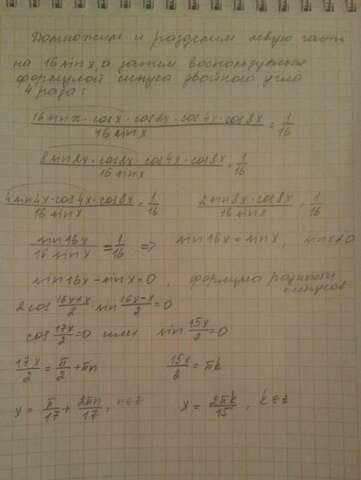 Домножим и разделим левую часть
на 16 sin x, а затем воспользуемся
формулой синуса двойного угла
4 раза:
16 sin x · cos x · cos 2x · cos 4x · cos 8x / 16 sin x = 1/16
8 sin 2x · cos 2x · cos 4x · cos 8x / 16 sin x = 1/16
4 sin 4x · cos 4x · cos 8x / 16 sin x = 1/16   2 sin 8x · cos 8x / 16 sin x = 1/16
sin 16x / 16 sin x = 1/16 => sin 16x = sin x, sin x ≠ 0
sin 16x - sin x = 0, формула разности
синусов
2 cos (16x+x)/2 · sin (16x-x)/2 = 0
cos 17x/2 = 0 или sin 15x/2 = 0
17x/2 = π/2 + πn   15x/2 = πk
x = π/17 + 2πn/17, n∈Z   x = 2πk/15, k∈Z